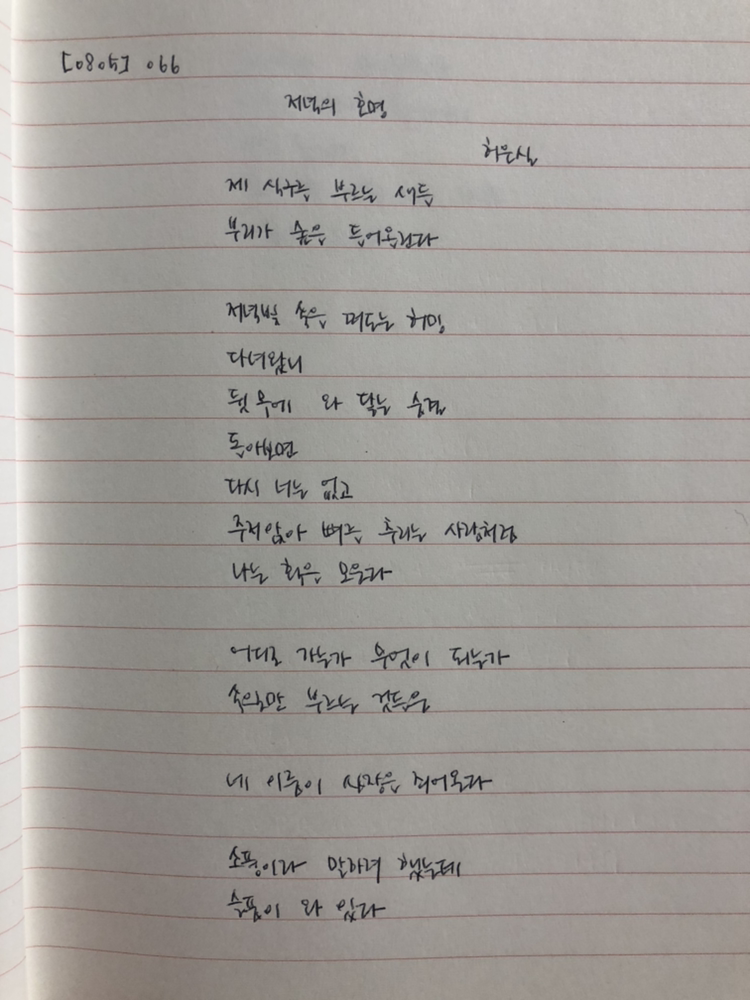 [0805] 066
저녁의 호명
허은실
제 식구를 부르는 새들
부리가 숲을 들어올린다
저녁빛 속을 떠도는 허밍
다녀왔니
뒷목에 와 닿는 숨결
돌아보면
다시 너는 없고
주저앉아 뼈를 추리는 사람처럼
나는 획을 모은다
어디로 가는가 무엇이 되는가
속으로만 부르는 것들은
네 이름이 심장을 죄어온다
소풍이라 말하려 했는데
슬픔이 와 있다